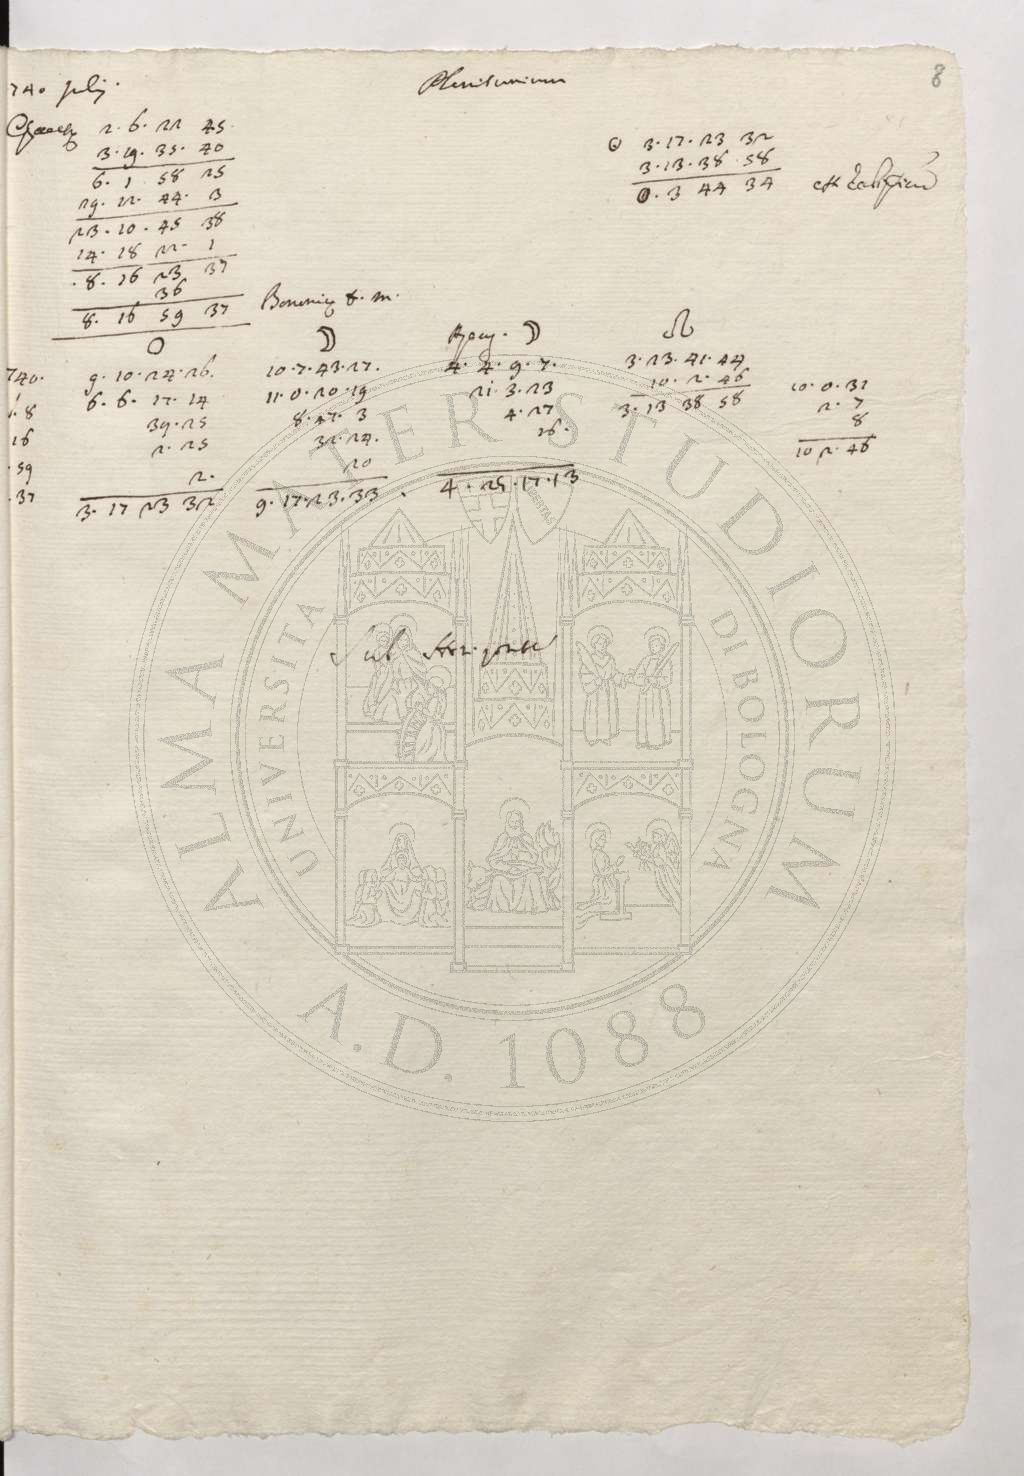 740 julij. Plenilunium 8
Epactæ 2. 6. 22 45.
3. 19. 35. 40
6. 1 58 25
29. 12. 44. 3
23. 10. 45 38
14. 18 22. 1
8. 16 23 37
36
8. 16 59 37 Bononiæ t. m.
☉ 3. 17. 23 32
3. 13. 38 58
0. 3 44 34 est Eclipsis
☉ ☽ Apog. ☽ ☊
740. 9. 10. 24. 26. 10. 7. 43. 27. 4. 4. 9. 7. 3. 23. 41. 44
8 6. 6. 17. 14 11. 0. 20. 19 21. 3. 23 10. 2. 46 10. 0. 31
16 39. 25 8. 47. 3 4. 27 3. 13 38 58 2. 7
59 2. 25 32. 24. 16. 8
37 2. 20 10 2. 46
3. 17 23 32 9. 17. 23. 33. 4. 25. 17. 13
Sub Horizonte
ALMA MATER STUDIORUM
UNIVERSITA DI BOLOGNA
A.D. 1088